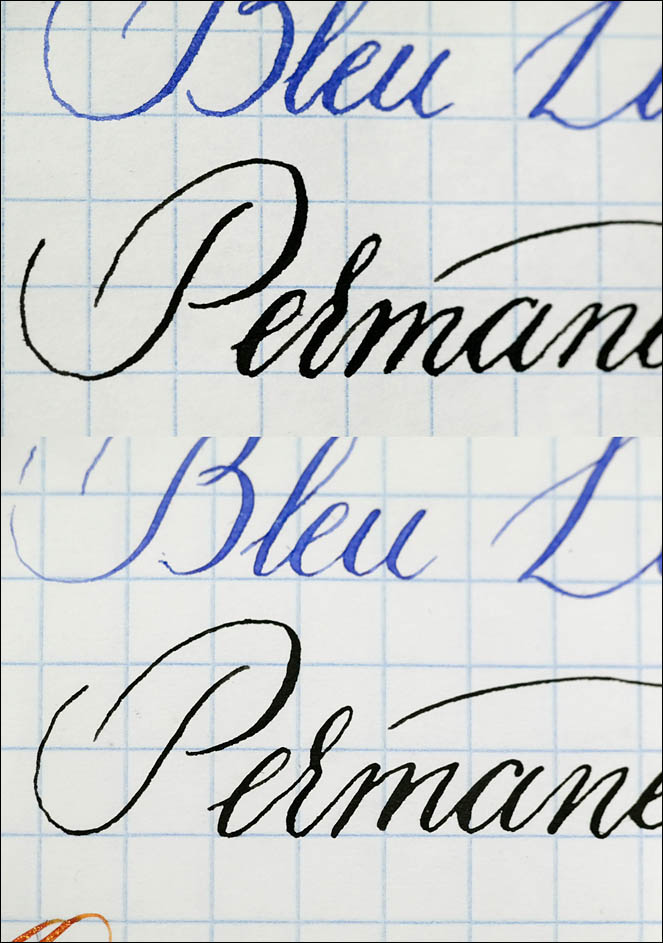 Bleu
Perman
Bleu
Permane